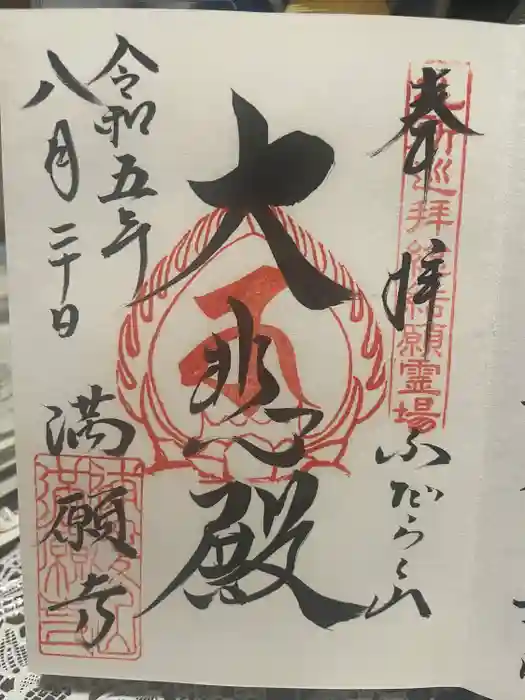 奉拝
ふだらく山
大悲殿
満願寺
令和五年
八月二十日
巡拝
結願霊場